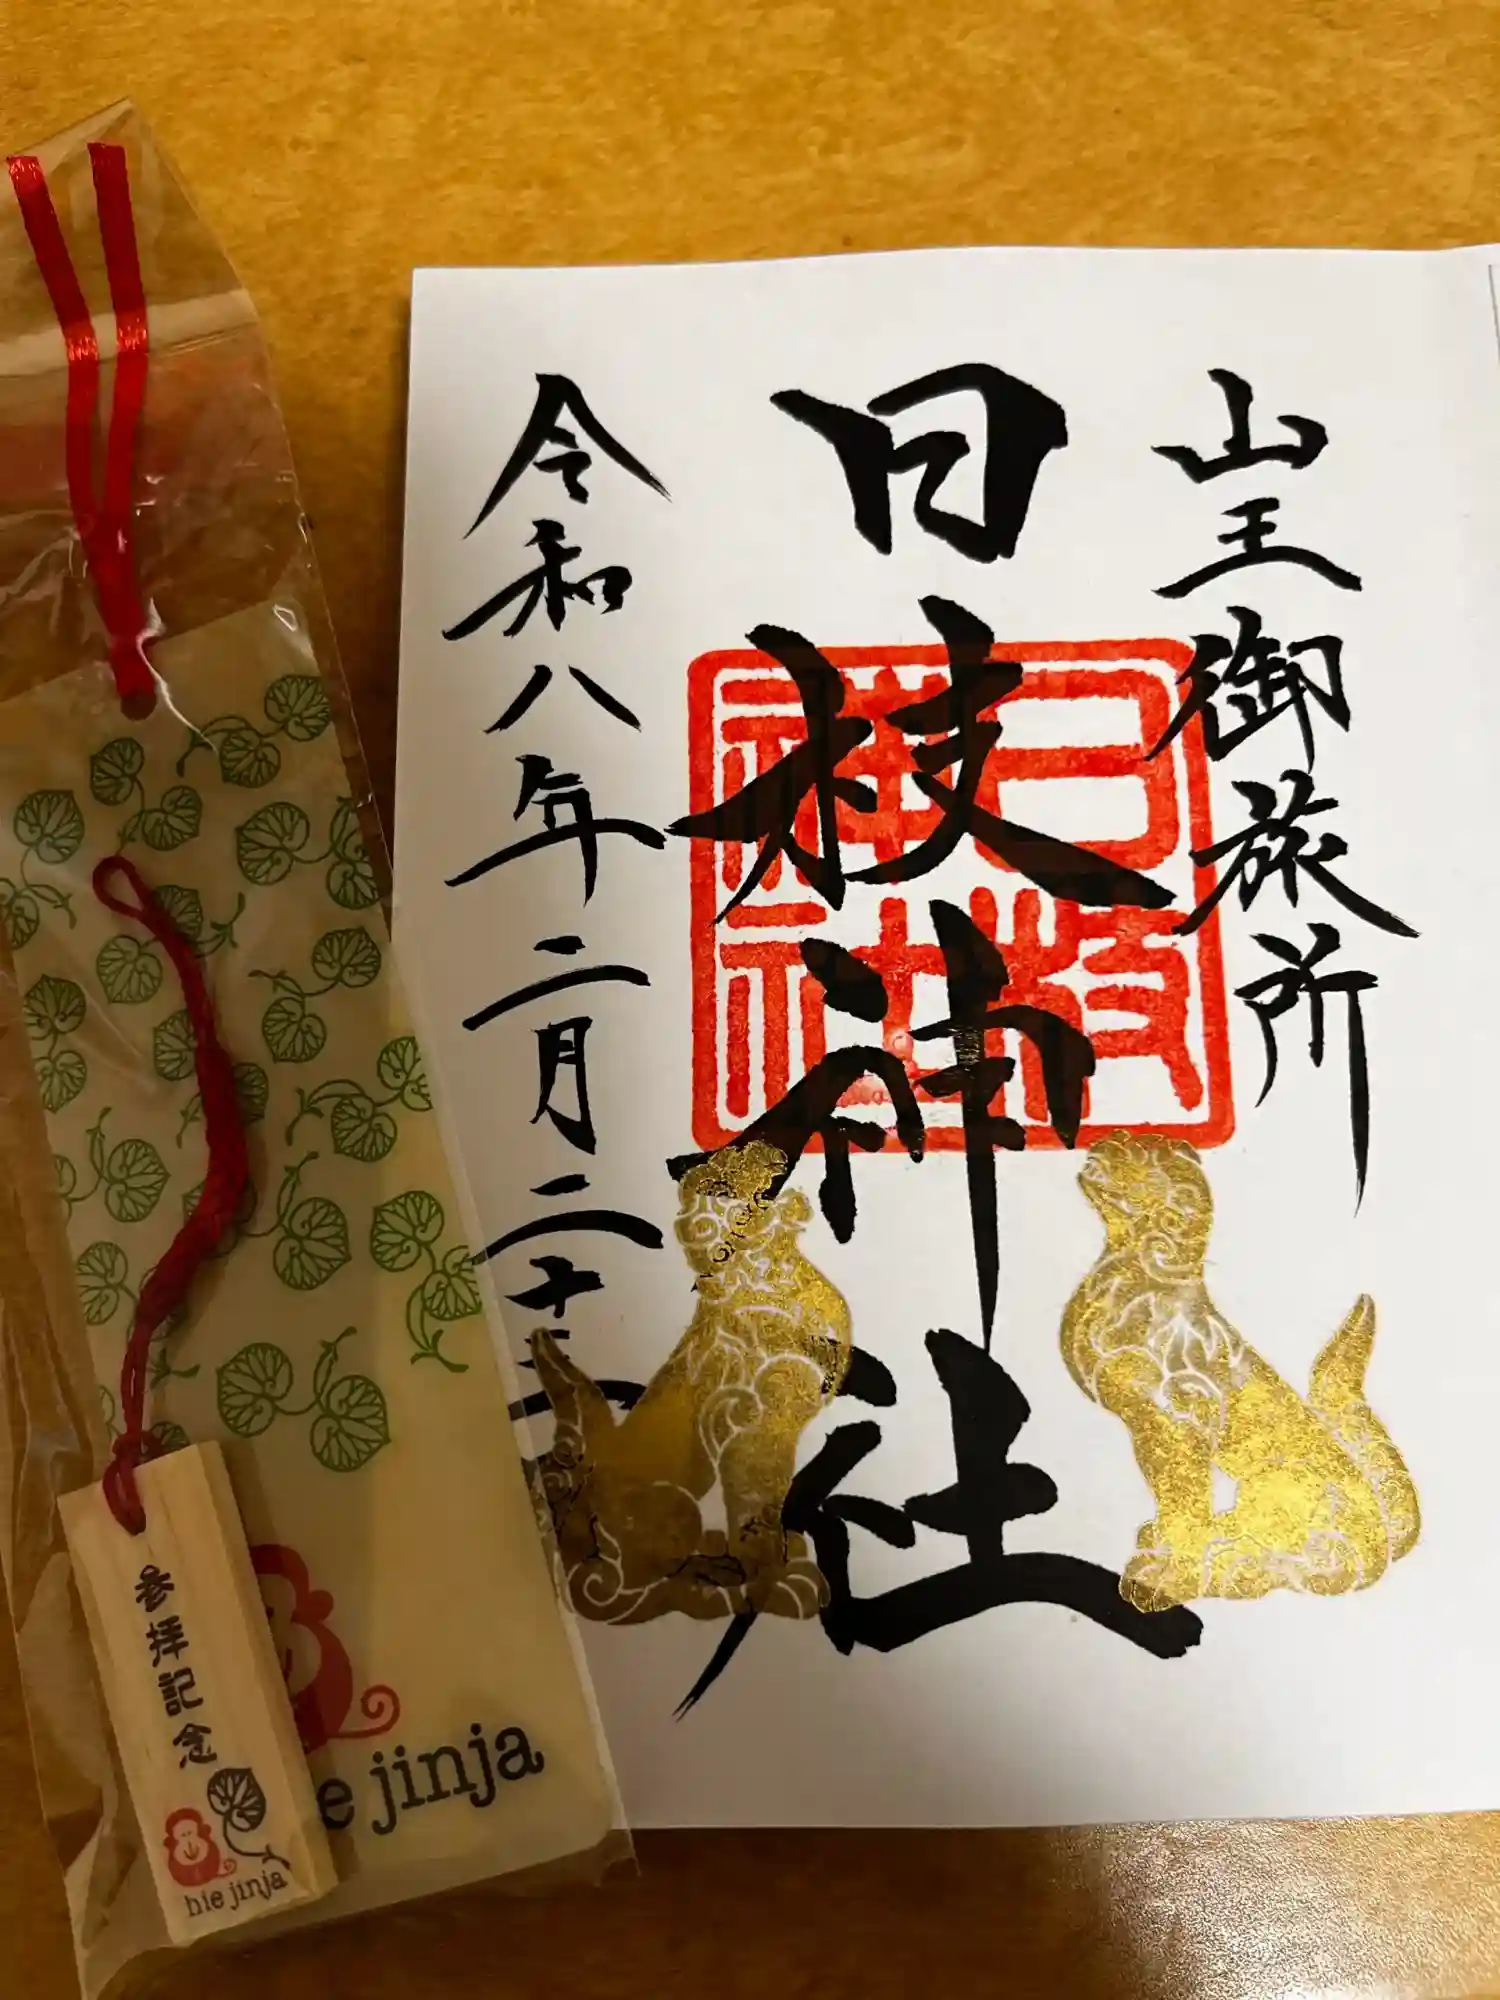 山王御旅所
日枝神社
令和八年二月二十三
日枝神社
参拝記念
hie jinja
e jinja